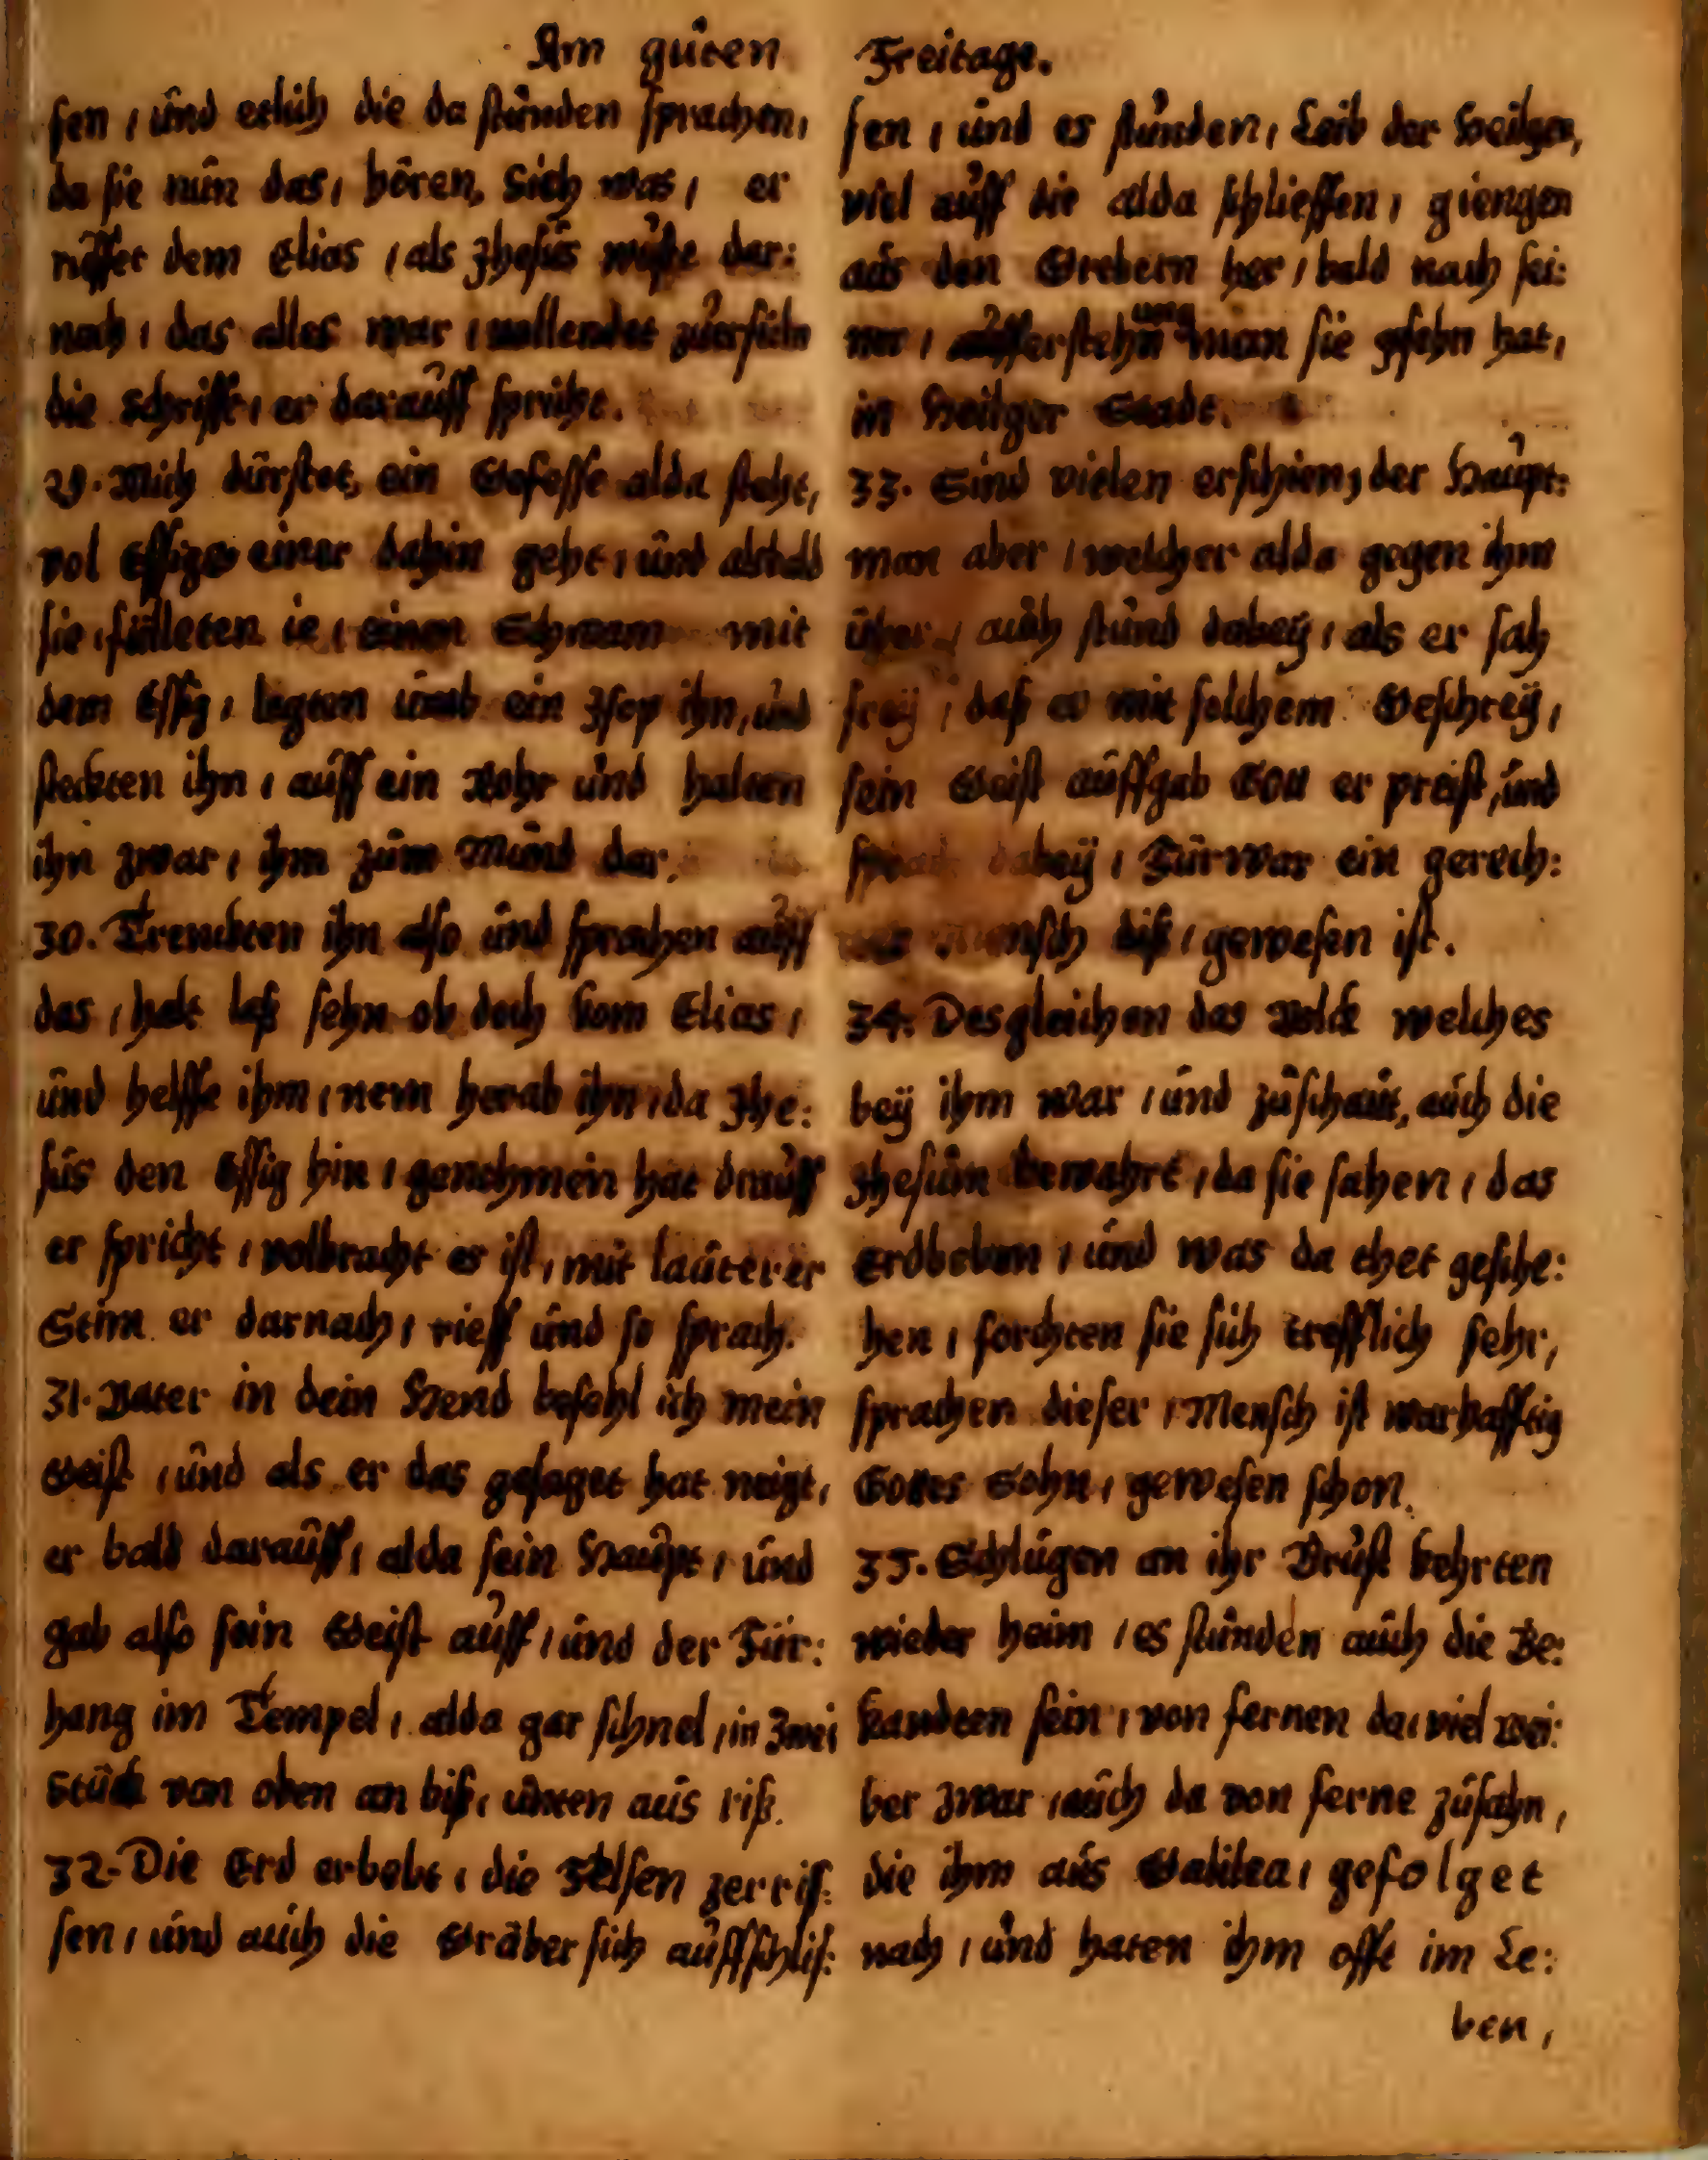 Am guten Freitage.
sen / und etlich die da stunden sprachen,
da sie nun das / hören, Sich was / er
ruffet dem Elias / als Jhesus wuste dar:
nach / das alles war / vollendet zuerfüln
die Schrifft / er darauff spricht.
29. Mich dürstet, ein Gefesse alda steht,
vol Essigs einer dahin geht / und alsbald
sie / fülleten ie / einen Schwam mit
dem Essig / legten umb ein Jsop ihn, und
steckten ihn / auff ein Rohr und halten
ihn zwar / ihm zum Mund dar.
30. Trenckten ihn also und sprachen auff
das / halt laß sehn ob doch kom Elias /
und helffe ihm / nem herab ihn / da Jhe:
sus den Essig hin / genehmen hat drauff
er spricht / volbracht es ist, mit lauterer
Stim er darnach / rieff und so sprach.
31. Vater in dein Hend befehl ich mein
Geist / und als er das gesaget hat neigt,
er bald darauff / alda sein Haupt / und
gab also sein Geist auff / und der Für:
hang im Tempel / alda gar schnel / in Zwei
Stück von oben an biß / unten aus riß.
32. Die Erd erbebt / die Felsen zerris:
sen / und auch die Gräber sich auffschlis:
sen / und es stunden / Leib der Heilgen,
viel auff die alda schlieffen / giengen
aus den Grebern her / bald nach sei:
ner / aufferstehn und man sie gsehn hat,
in Heilger Stadt.
33. Sind vielen erschien, der Haupt:
man aber / welcher alda gegen ihm
über / auch stund dabey / als er sah
frey / daß er mit solchem Geschrey,
sein Geist auffgab Gott er preist, und
sprach dabey / Fürwar ein gerech:
ter Mensch diß / gewesen ist.
34. Desgleichen das Volck welches
bey ihm war / und zuschaut, auch die
Jhesum bewahrt / da sie sahen / das
Erdbeben / und was da thet geschе:
hen / forchten sie sich trefflich sehr,
sprachen dieser / Mensch ist warhafftig
Gottes Sohn / gewesen schon.
35. Schlugen an ihr Brust kehrten
wieder heim / es stunden auch die Be:
kandten sein / von fernen da / viel wei:
ber zwar / auch da von ferne zusahn,
die ihm aus Galilea / gefolget
nach / und haten ihm offt im Le:
ben,